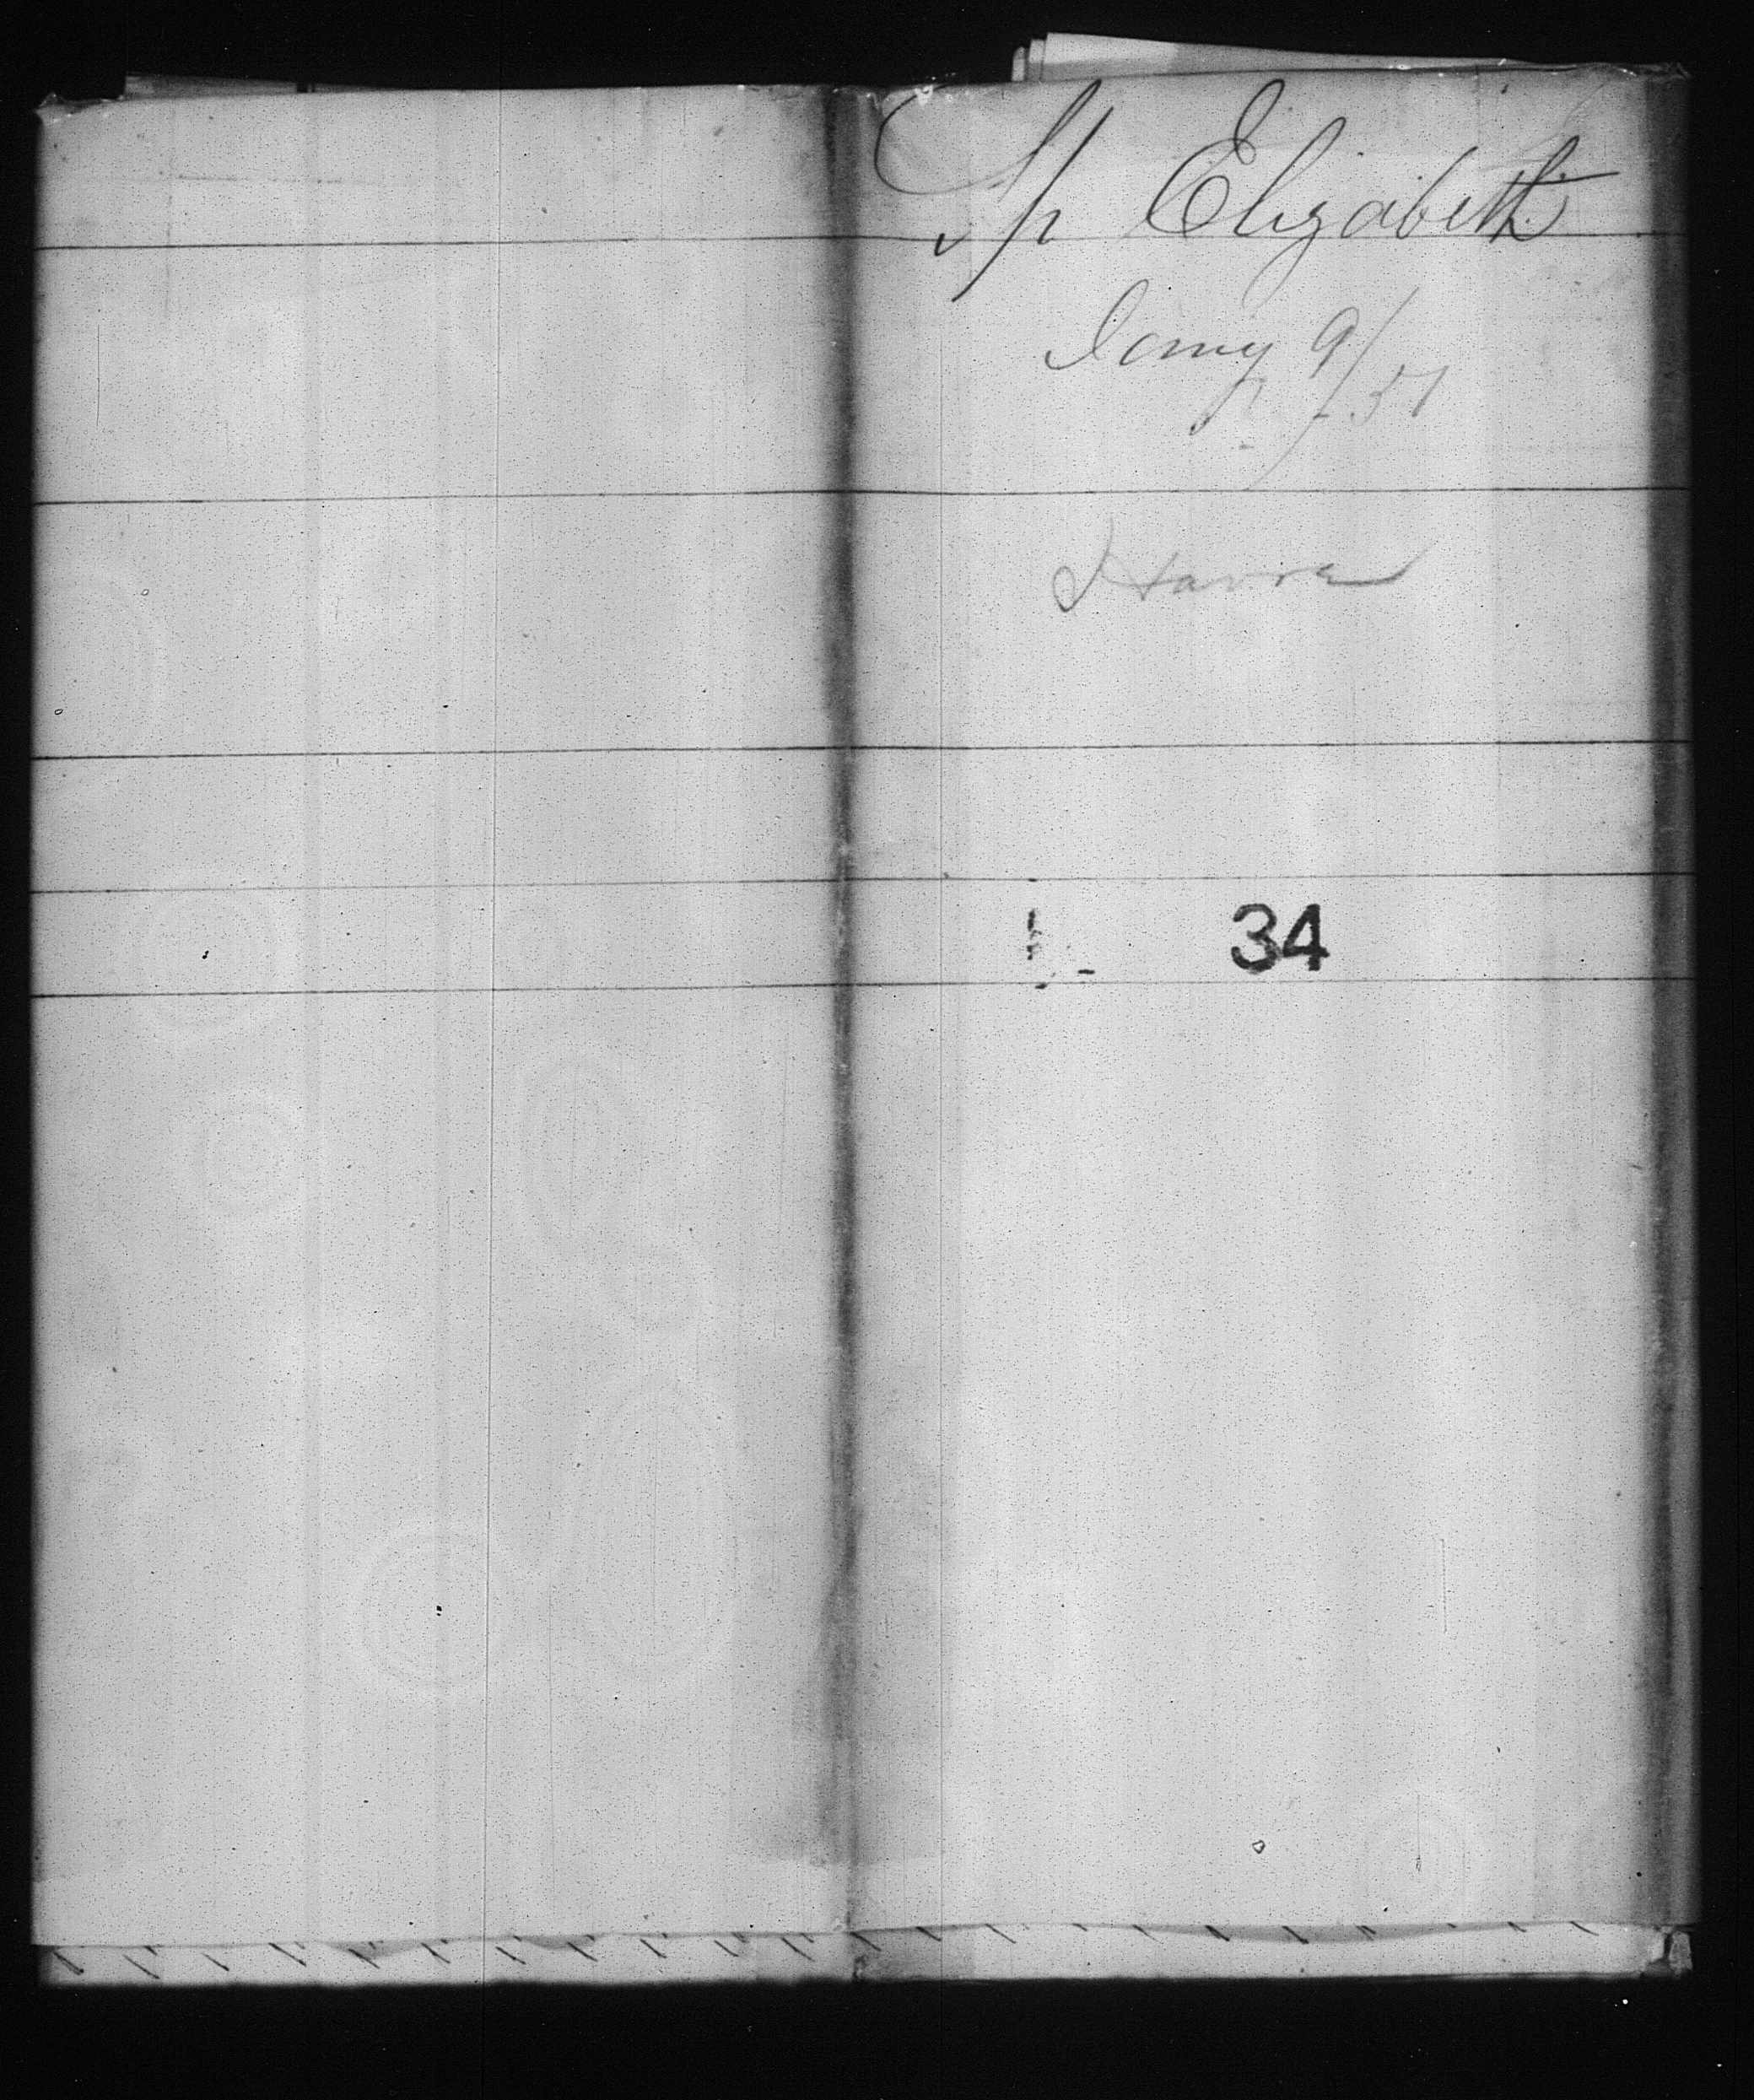 Sp Elizabeth
Jany 9/51
Havre
34